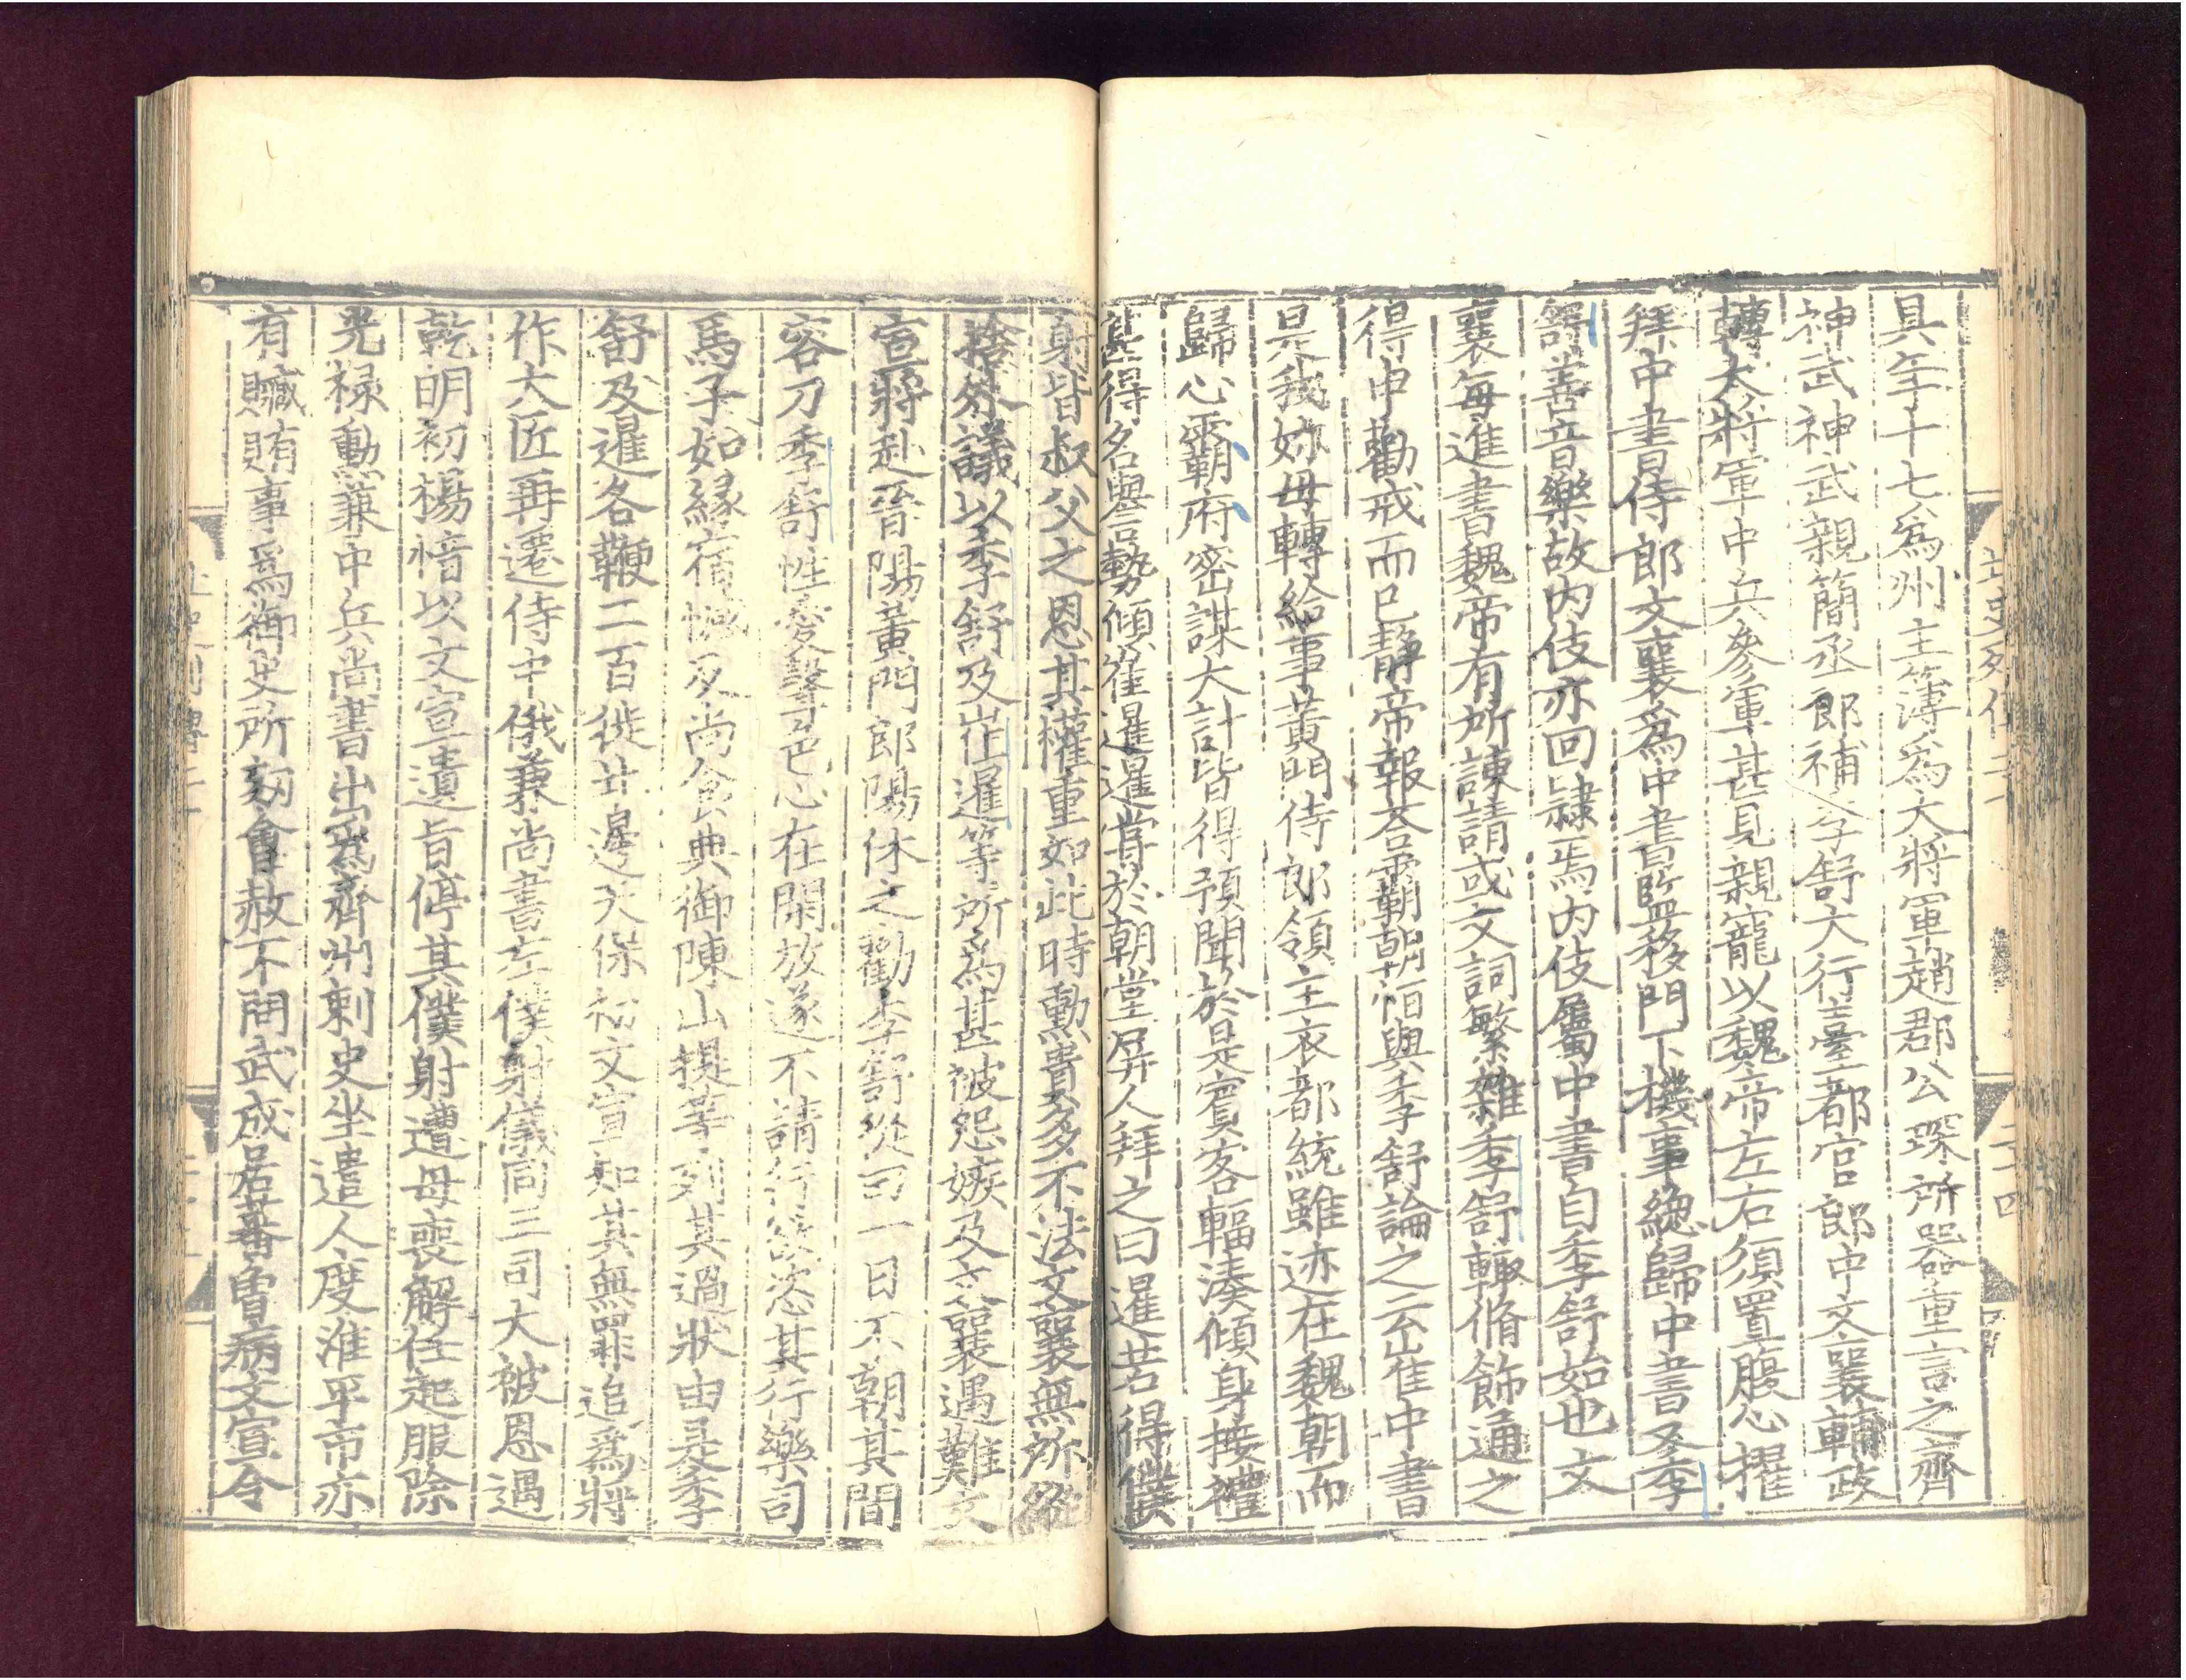 具年十七爲州主簿爲大將軍趙郡公琛所器重言之齊
神武神武親簡丞郎補季舒大行臺都官郎中文襄輔政
轉大將軍中兵參軍甚見親寵以魏帝左右須置腹心擢
拜中書侍郎文襄爲中書監移門下機事總歸中書又季
舒善音樂故内伎亦回隸焉内伎屬中書自季舒始也文
襄每進書魏帝有所諫請或文詞繁雜季舒輙脩飾通之
得申勸戒而已静帝報荅霸朝恒與季舒論之云崔中書
是我妳母轉給事黃門侍郎領主衣都統雖迹在魏朝而
歸心霸府密謀大計皆得預聞於是賓客輻湊傾身接禮
甚得名譽勢傾崔暹暹嘗於朝堂屏人拜之曰暹若得僕
射皆叔父之恩其權重如此時勳貴多不法文襄無所縱
捨外議以季舒及崔暹等所爲甚被怨嫉及文襄遇難文
宣將赴晉陽黃門郎陽休之勸季舒從曰一日不朝其間
容刀季舒性愛聲色心在閑放遂不請行欲恣其行樂司
馬子如緣宿憾及尚食典御陳山提等列其過狀由是季
舒及暹各鞭二百徙北邊天保初文宣知其無罪追爲將
作大匠再遷侍中俄兼尚書左僕射儀同三司大被恩遇
乾明初楊愔以文宣遺旨停其僕射遭母喪解任起服除
光禄勳兼中兵尚書出爲齊州刺史坐遣人度淮平市亦
有贓賄事爲御史所劾會赦不問武成居蕃曾病文宣令